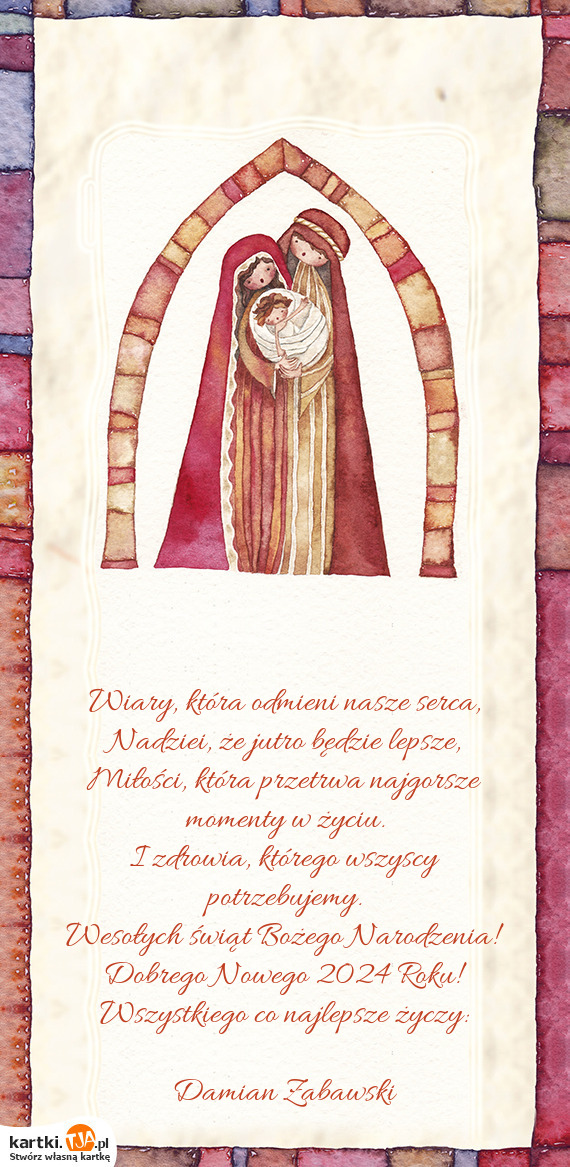 Wiary, która odmieni nasze serca,
Nadziei, że jutro będzie lepsze,
Miłości, która przetrwa najgorsze
momenty w życiu.
I zdrowia, którego wszyscy
potrzebujemy.
Wesołych świąt Bożego Narodzenia!
Dobrego Nowego 2024 Roku!
Wszystkiego co najlepsze życzy:
Damian Zabawski
kartki.TJA.pl
Stwórz własną kartkę